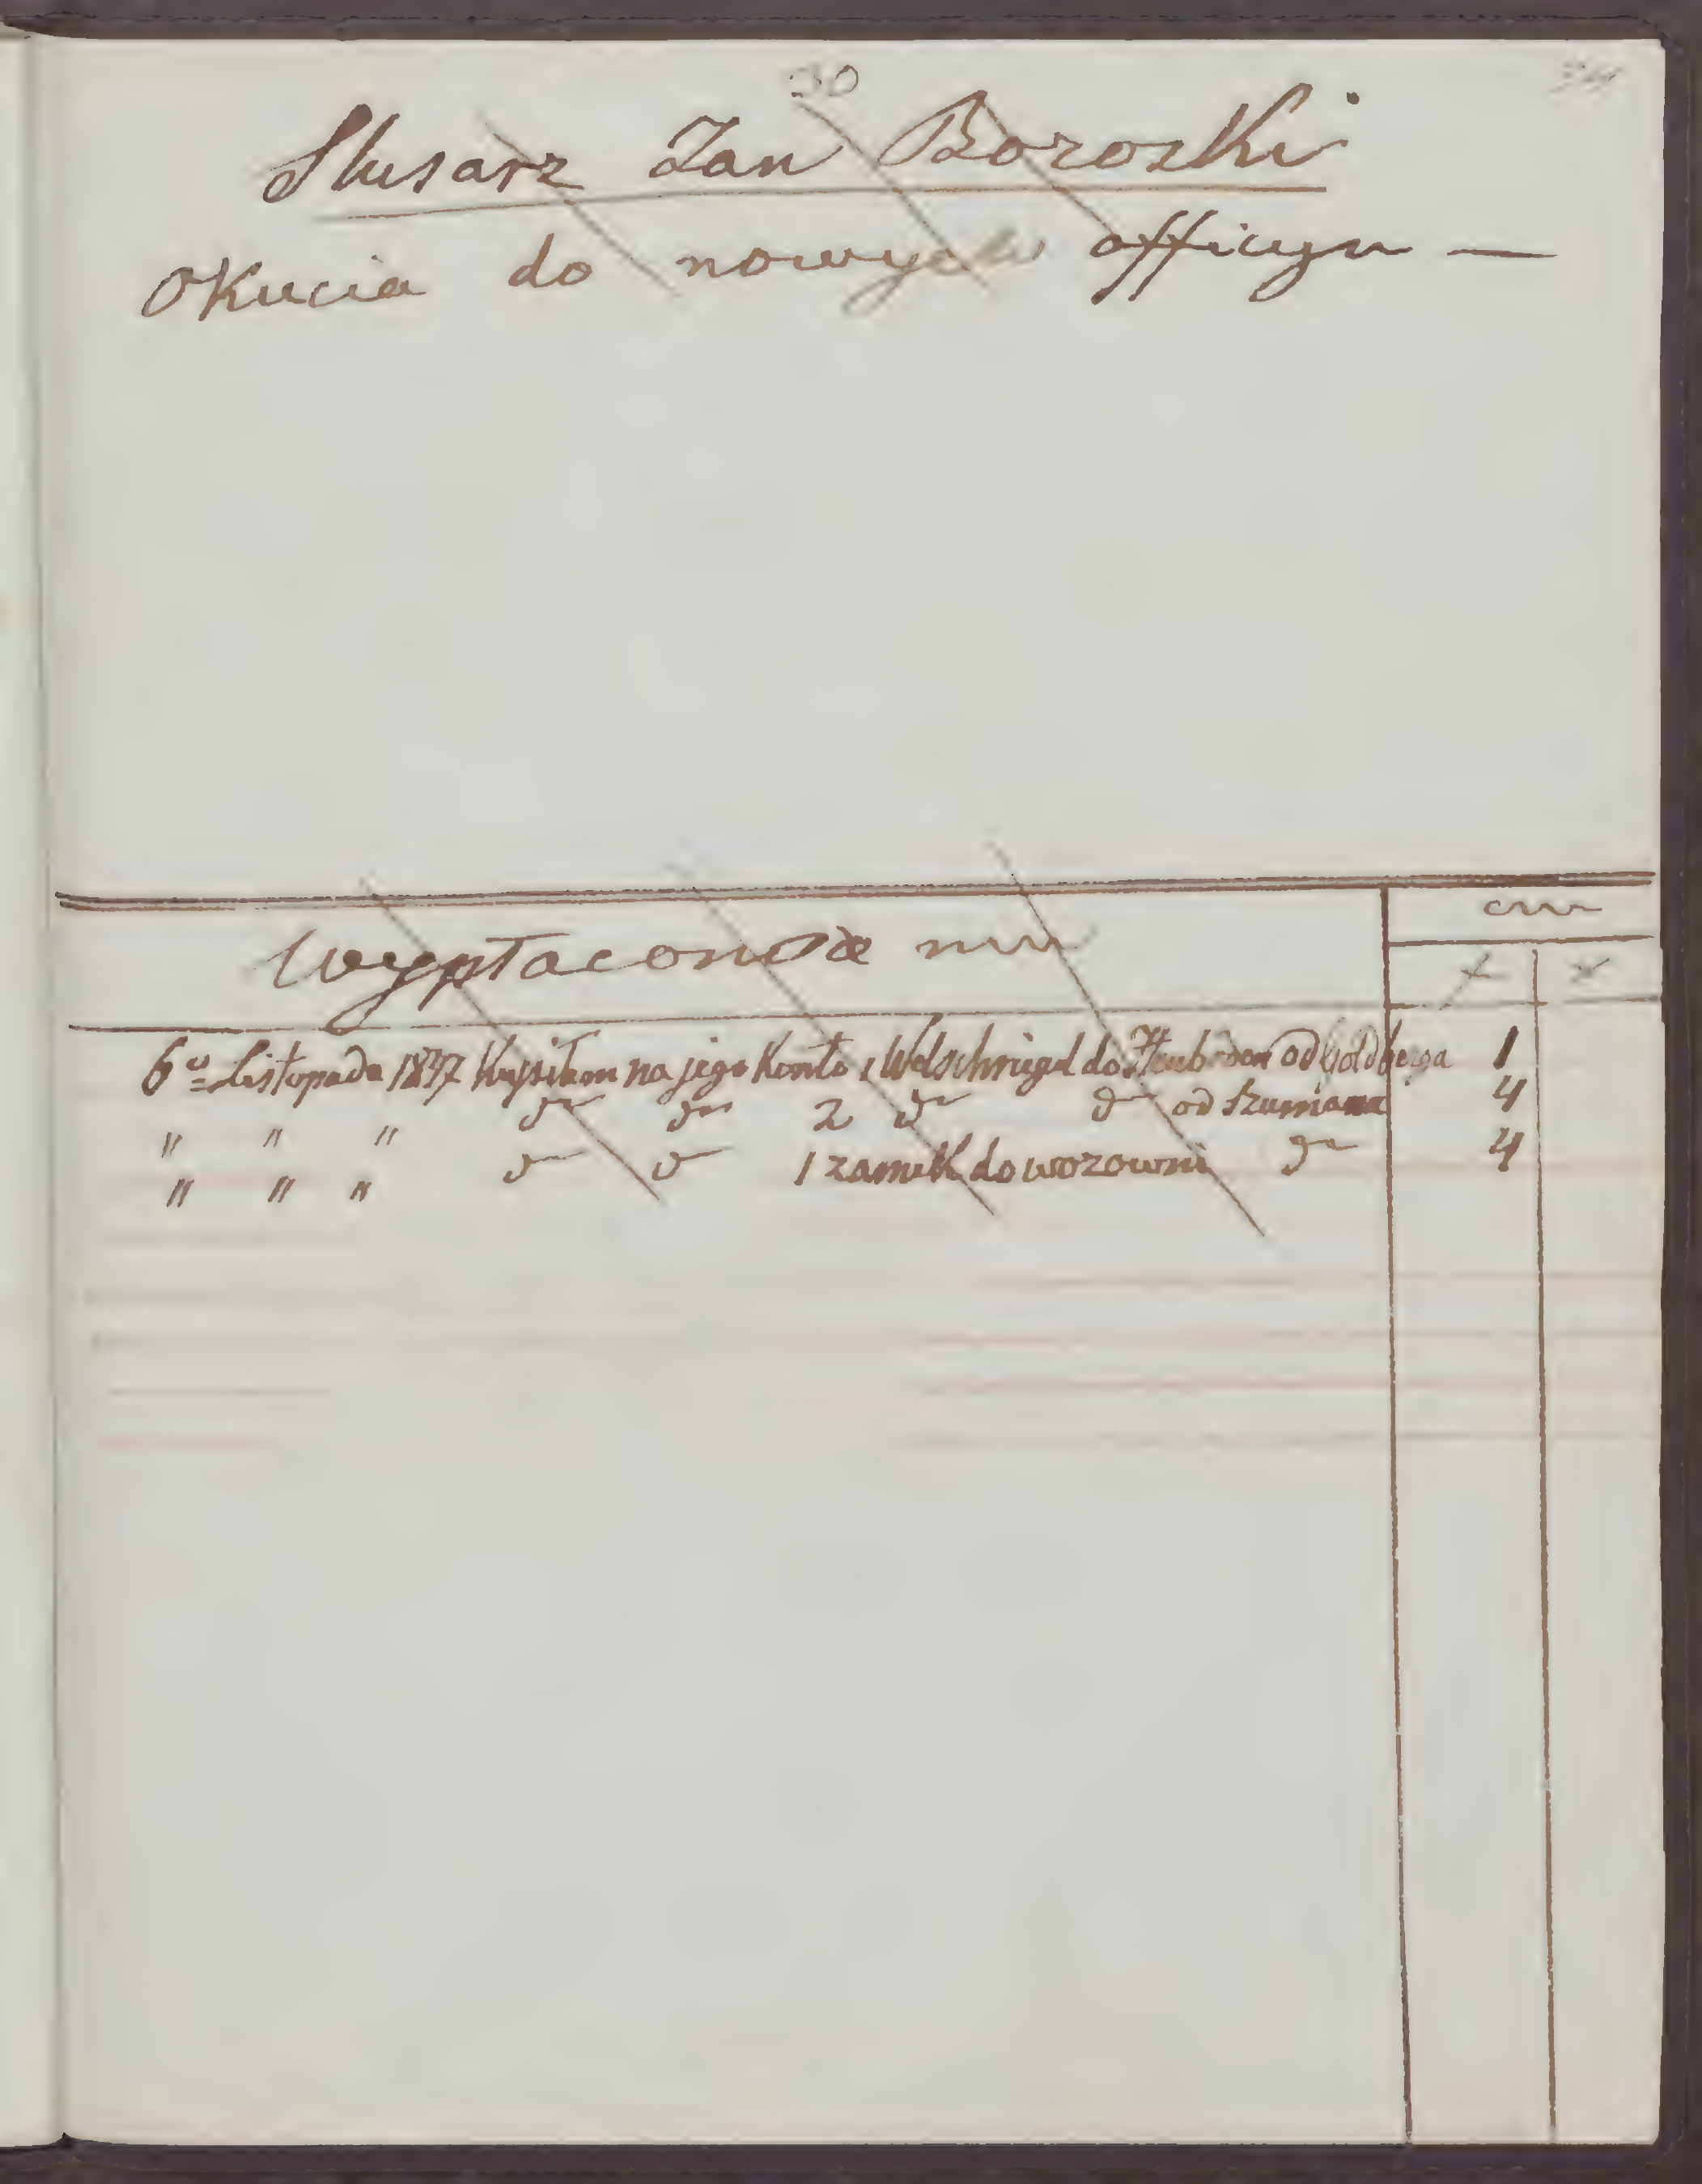 30
Slusarz Jan Boroski
Okucia do nowych officyn —
Wypłacono mu
cm
x x
6º Listopada 1837 Kupiłam na jego Konto 1 Welschriegel do od Goldberga 1
" " " do do 2 do do od Szumana 4
" " " do do 1 zamek do wozowni do 4